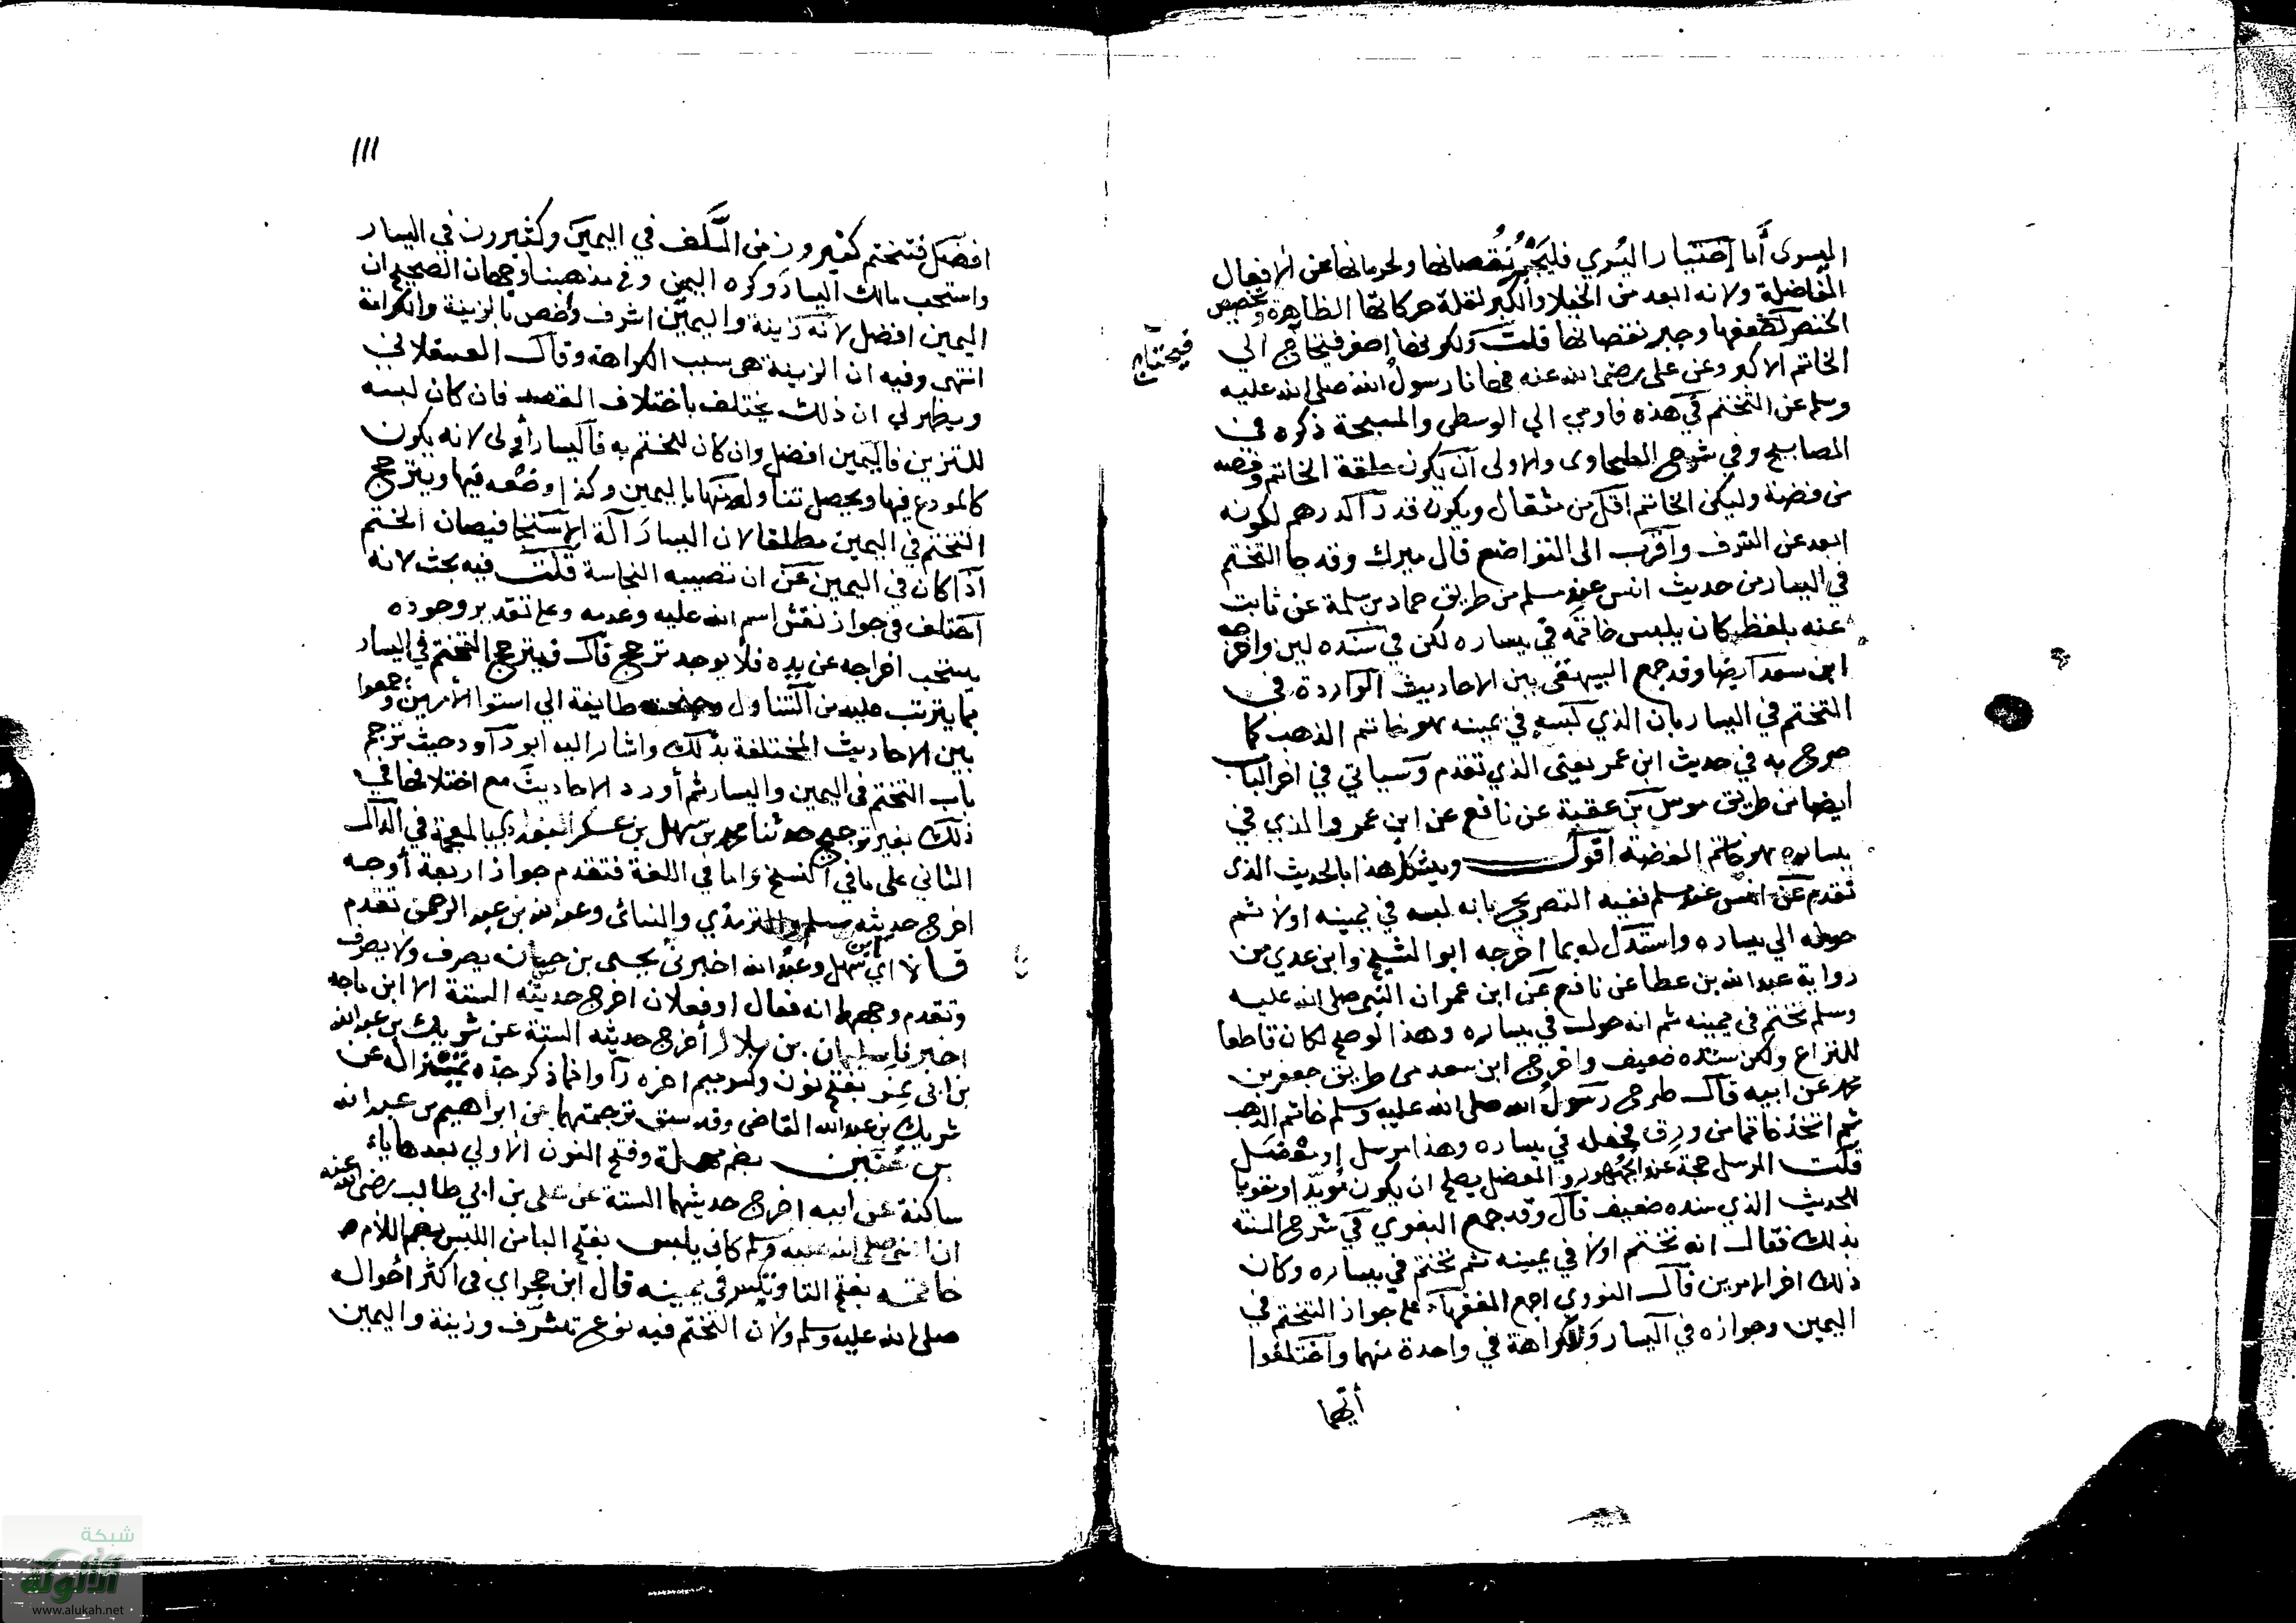 اليسرى أما اختيار اليسرى فليجبر نقصانها ولحرمانها عن الافعال
الفاضلة ولانه ابعد من الخيلا والكبر لقلة حركاتها الظاهرة وتخصيص
الخنصر لضعفها وجبر نقصانها قلت ولكونها اصغر فيحتاج الي
فيحتاج
الخاتم الاكبر وعن على رضى الله عنه نهانا رسول الله صلى الله عليه
وسلم عن التختم في هذه فاومي الي الوسطى والمسبحة ذكره في
المصابيح وفي شرح الطحاوى والاولى أن يكون حلقة الخاتم وفصه
من فضة وليكن الخاتم اقل من مثقال ويكون قدر الدرهم لكونه
ابعد عن الترف واقرب الى التواضع قال ميرك وقد جا التختم
في اليسار من حديث انس عند مسلم من طريق حماد بن سلمة عن ثابت
عنه بلفظ كان يلبس خاتمه في يساره لكن في سنده لين واخرجه
ابن سعد ايضا وقد جمع البيهقى بين الاحاديث الواردة في
التختم في اليسار بان الذي لبسه في يمينه هو خاتم الذهب كما
صرح به في حديث ابن عمر يعنى الذي تقدم وسياتي في اخر الباب
ايضا من طريق موسى بن عقبة عن نافع عن ابن عمر والذي في
يساره هو خاتم الفضة اقول ويشكل هذا بالحديث الذى
تقدم عن انس عند مسلم ففيه التصريح بانه لبسه في يمينه اولا ثم
حوله الي يساره واستدل له بما اخرجه ابو الشيخ وابن عدي من
رواية عبد الله بن عطا عن نافع عن ابن عمر ان النبي صلى الله عليه
وسلم تختم في يمينه ثم انه حوله في يساره وهذا لو صح لكان قاطعا
للنزاع ولكن سنده ضعيف واخرج ابن سعد من طريق جعفر بن
محمد عن ابيه قال طرح رسول الله صلى الله عليه وسلم خاتم الذهب
ثم اتخذ خاتما من ورق فجعله في يساره وهذا مرسل او معضل
قلت المرسل حجة عند الجمهور والمعضل يصلح ان يكون مؤيدا او مقويا
للحديث الذي سنده ضعيف قال وقد جمع البغوي في شرح السنة
بذلك فقال انه تختم اولا في يمينه ثم تختم في يساره وكان
ذلك اخر الامرين قال النووي اجمع الفقهآء على جواز التختم في
اليمين وجوازه في اليسار ولا كراهة في واحدة منهما واختلفوا
أيهما
١١١
افضل فتختم كثيرون من السلف في اليمين وكثيرون في اليسار
واستحب مالك اليسار وكره اليمين وفي مذهبنا وجهان الصحيح ان
اليمين افضل لانه زينة واليمين اشرف واخص بالزينة والكرامة
انتهى وفيه ان الزينة هى سبب الكراهة وقال العسقلاني
ويظهر لي ان ذلك يختلف باختلاف القصد فان كان لبسه
للتزين فاليمين افضل وان كان للختم به فاليسار أولى لانه يكون
كالمودع فيها ويحصل تناوله منها باليمين وكذا وضعه فيها ويترجح
التختم في اليمين مطلقا لان اليسار آلة الاستنجا فيصان الختم
اذا كان في اليمين عن ان تصيبه النجاسة قلت فيه بحث لانه
اختلف في جواز نقش اسم الله عليه وعدمه وعلى تقدير وجوده
يستحب اخراجه عن يده فلا يوجد ترجيح قال فيترجح التختم في اليسار
بما يترتب عليه من التناول وجنحت طايفة الي استوا الامرين وجمعوا
بين الاحاديث المختلفة بذلك واشار اليه ابو داود حيث ترجم
باب التختم في اليمين واليسار ثم أورد الاحاديث مع اختلافها في
ذلك بغير ترجيح حدثنا محمد بن سهل بن عسكر البغدادي بالمعجمة في الدال
الثاني على ما في النسخ واما في اللغة فتقدم جواز اربعة أوجه
اخرج حديثه مسلم والترمذي والنسائى وعبد الله بن عبد الرحمن تقدم
قالا اي ابن سهل وعبد الله اخبرنى يحيى بن حسان يصرف ولا يصرف
وتقدم وجههما انه فعال او فعلان اخرج حديثه الستة الا ابن ماجه
اخبرنا سليمان بن بلال أخرج حديثه الستة عن شريك بن عبد الله
بن ابى نمر بفتح نون وكسر ميم اخره رآ وانما ذكر جده تمييزا له عن
شريك بن عبد الله القاضى وقد سبق ترجمتهما عن ابراهيم بن عبد الله
بن حنين بضم مهملة وفتح النون الاولي بعدها ياء
ساكنة عن ابيه اخرج حديثهما الستة عن على بن ابي طالب رضى الله عنه
ان النبى صلى الله عليه وسلم كان يلبس بفتح البا من اللبس بضم اللام
خاتمه بفتح التا وتكسر في يمينه قال ابن حجر اي فى اكثر احواله
صلى الله عليه وسلم ولان التختم فيه نوع تشرف وزينة واليمين
شبكة
الألوكة
www.alukah.net